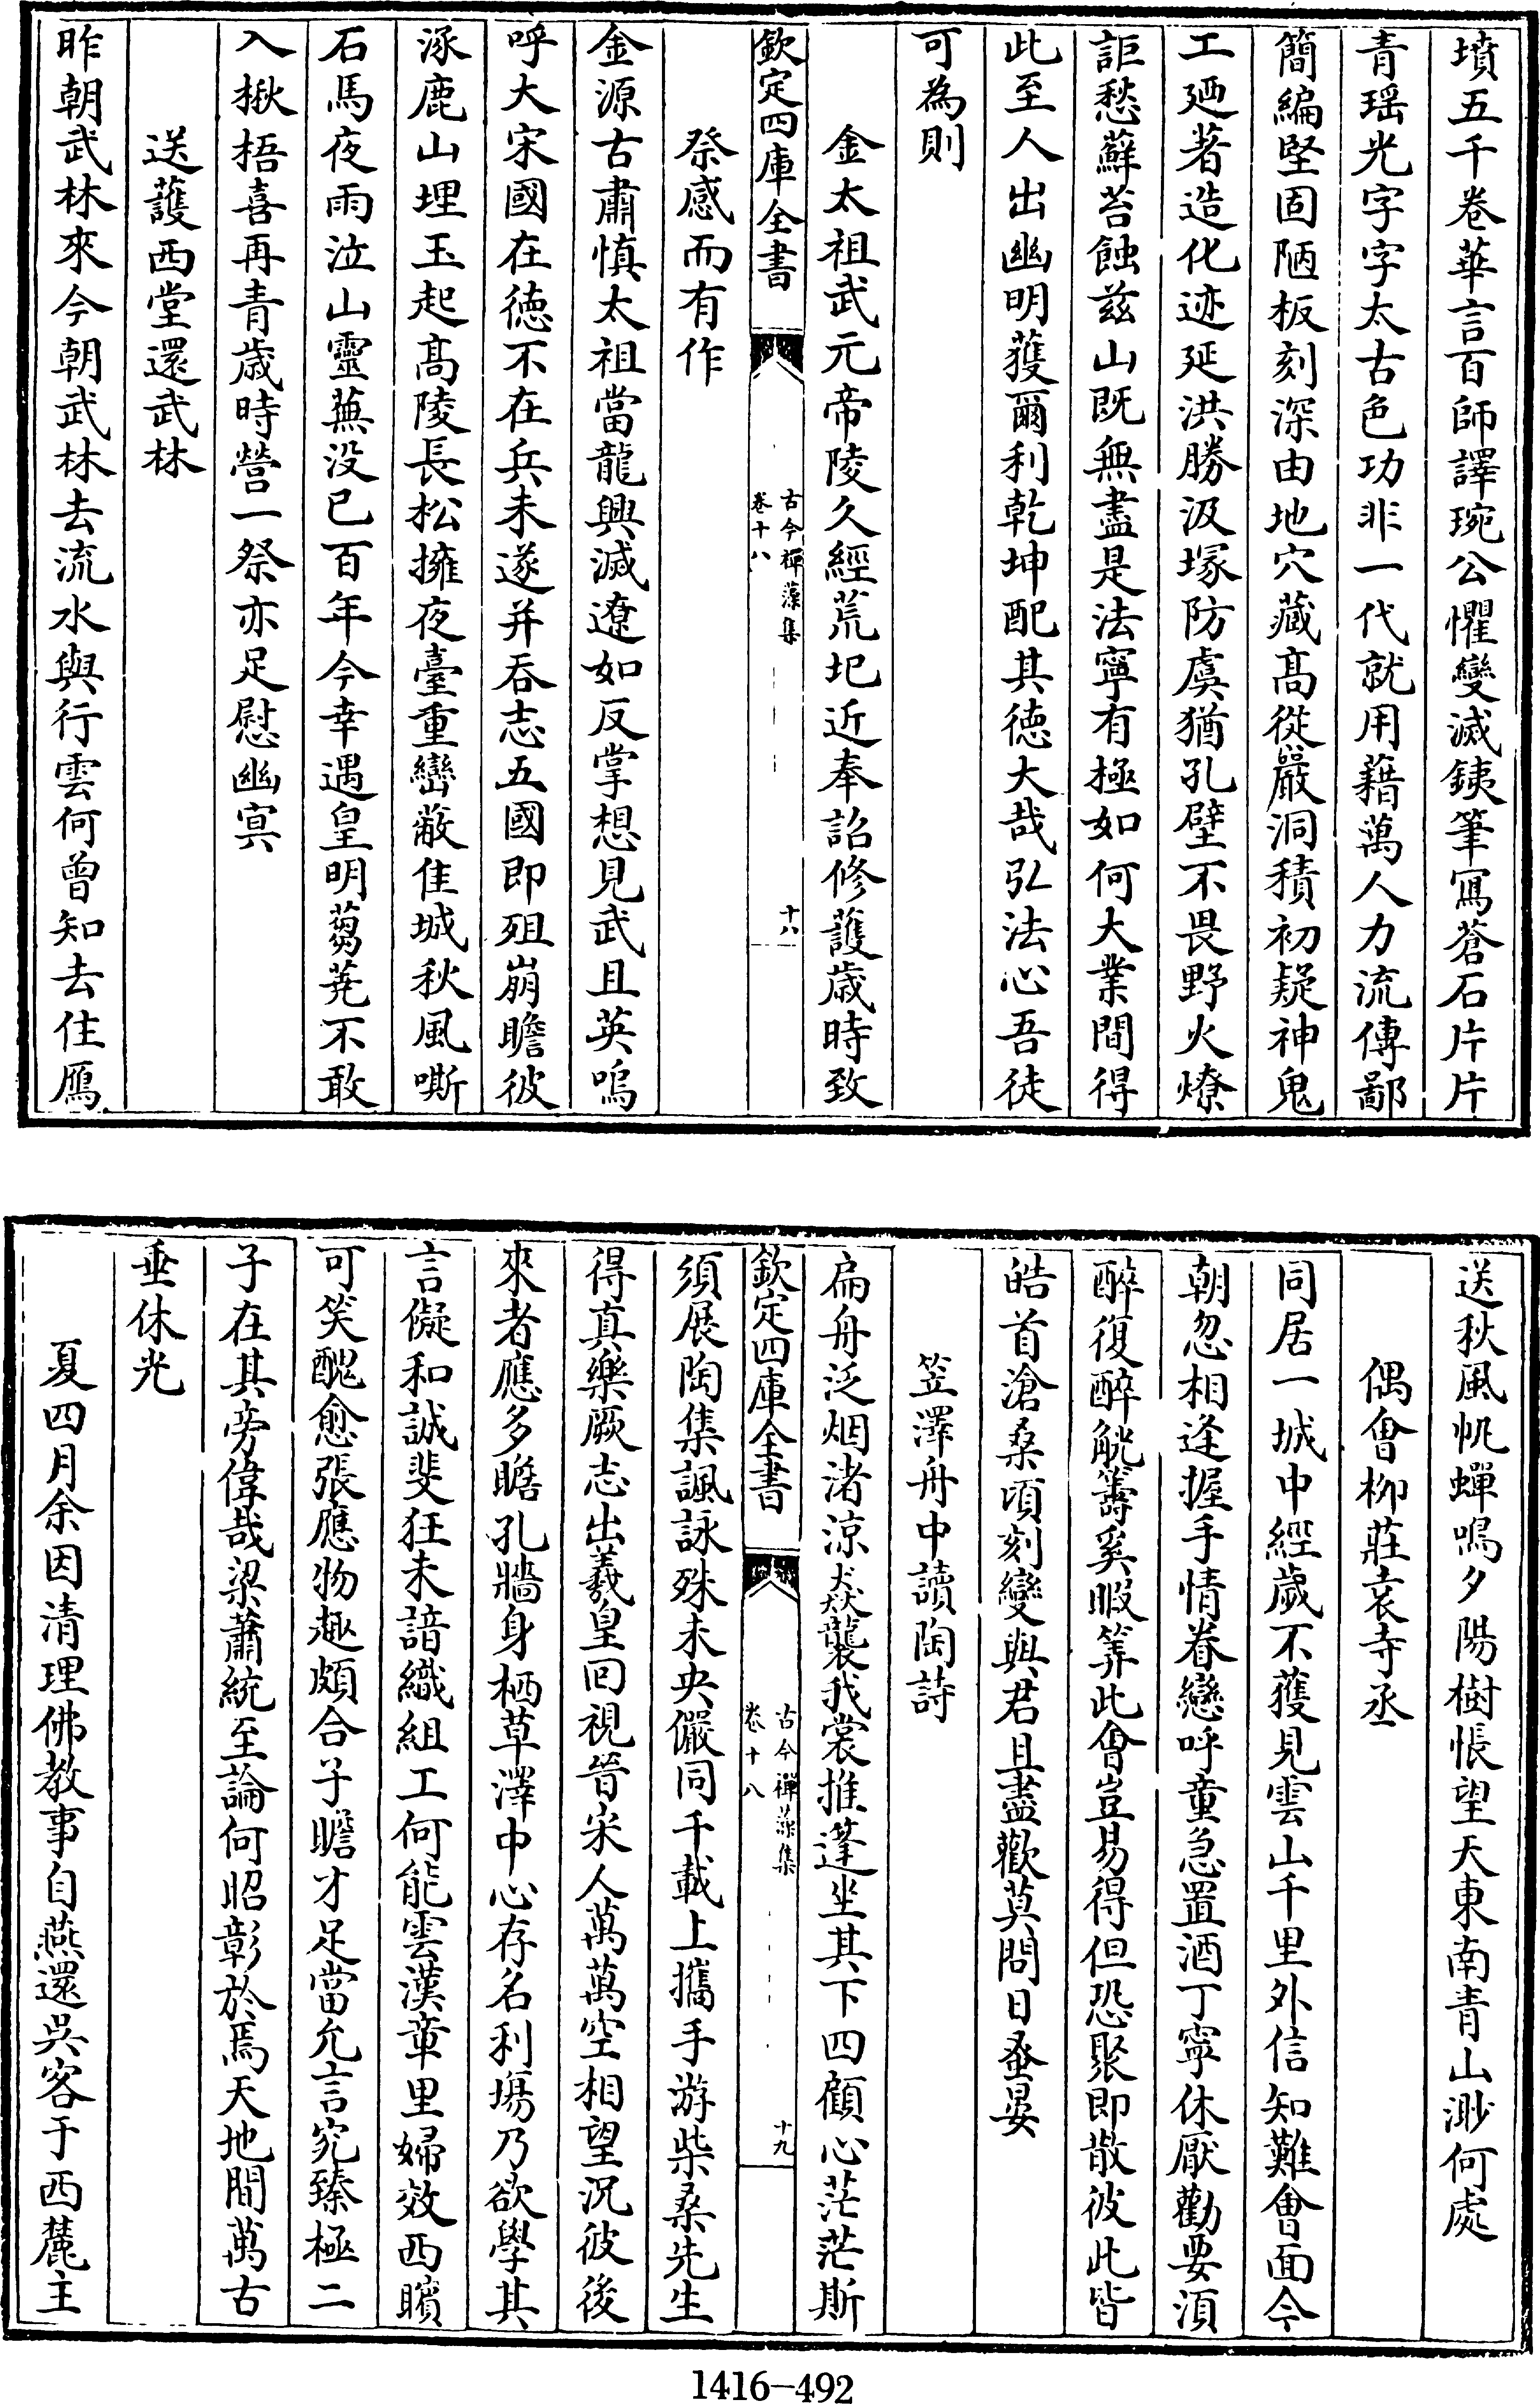 墳五千卷華言百師譯琬公懼變滅鋏筆寫蒼石片片
青瑶光字字太古色功非一代就用藉萬人力流傳鄙
簡編堅固陋板刻深由地穴藏髙從嚴洞積初疑神鬼
工廼著造化迹延洪勝汲塚防虞猶孔壁不畏野火燎
詎愁蘚苔蝕兹山既無盡是法寧有極如何大業間得
此至人出幽明獲爾利乾坤配其徳大哉弘法心吾徒
可為則
金太祖武元帝陵久經荒圯近奉詔修護歳時致
欽定四庫全書
古今禪藻集
卷十八
十八
祭感而有作
金源古肅慎太祖當龍興滅遼如反掌想見武且英嗚
呼大宋國在徳不在兵未遂并吞志五國即殂崩瞻彼
涿鹿山埋玉起髙陵長松擁夜臺重巒蔽佳城秋風嘶
石馬夜雨泣山靈蕪没已百年今幸遇皇明蒭蕘不敢
入楸梧喜再青歳時營一祭亦足慰幽㝠
送䕶西堂還武林
昨朝武林來今朝武林去流水與行雲何曾知去住鴈
送秋風帆蟬鳴夕陽樹悵望天東南青山渺何處
偶會栁莊袁寺丞
同居一城中經歲不獲見雲山千里外信知難會面今
朝忽相逢握手情眷戀呼童急置酒丁寧休厭勸要湏
醉復醉觥籌奚暇筭此會豈易得但恐聚即散彼此皆
皓首滄桑頃刻變與君且盡歡莫問日蚤晏
笠澤舟中讀陶詩
扁舟泛烟渚凉猋襲我裳推篷坐其下四顧心茫茫斯
欽定四庫全書
古今禪藻集
卷十八
十九
須展陶集諷詠殊未央儼同千載上攜手游柴桑先生
得真樂厥志出羲皇回視晉宋人萬萬空相望況彼後
來者應多瞻孔牆身栖草澤中心存名利塲乃欲學其
言儗和誠斐狂未諳織組工何能雲漢章里婦效西矉
可笑醜愈張應物趣頗合子瞻才足當允言究臻極二
子在其旁偉哉梁蕭統至論何昭彰於焉天地間萬古
垂休光
夏四月余因清理佛教事自燕還吳客于西麓主
1416-492